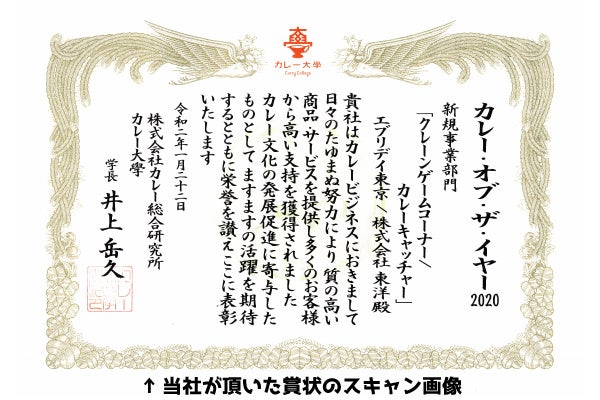 カレー大學
Curry College
カレー・オブ・ザ・イヤー2020
新規事業部門
「クレーンゲームコーナー\
カレーキャッチャー」
エブリデイ東京\株式会社 東洋殿
貴社はカレービジネスにおきまして
日々のたゆまぬ努力により 質の高い
商品・サービスを提供し多くのお客様
から高い支持を獲得されました
カレー文化の発展促進に寄与した
ものとして ますますの活躍を期待
するとともに栄誉を讃え ここに表彰
いたします
令和二年一月二十二日
株式会社カレー総合研究所
カレー大學
学長 井上岳久
↑当社が頂いた賞状のスキャン画像